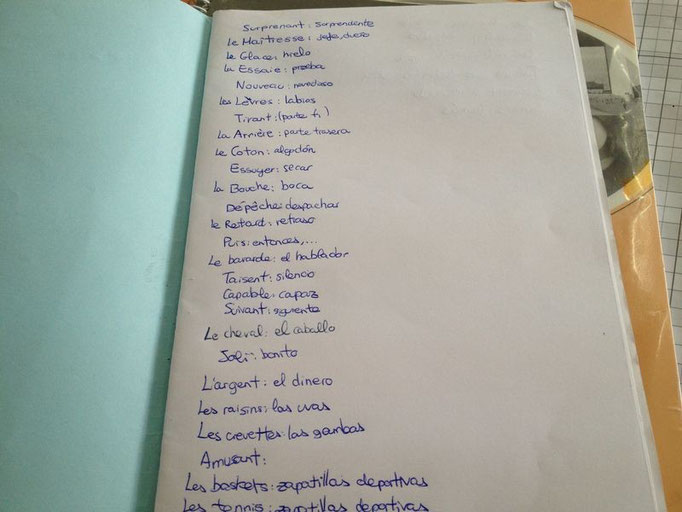 Surprenant: sorprendente
le Maîtresse: jefe, dueso
le Glace: hielo
la Essaie: prueba
Nouveau: novedoso
les Lèvres: labios
Tirant: (parte fi)
la Arrière: parte trasera
le Coton: algodón
Essuyer: secar
la Bouche: boca
Dépêche: despachar
le Retard: retraso
Puis: entonces,...
Le bavarde: el hablador
Taisent: silencio
Capable: capaz
Suivant: siguiente
Le cheval: el caballo
Joli: bonito
L'argent: el dinero
Les raisins: las uvas
Les crevettes: las gambas
Amusant:
Les baskets: zapatillas deportivas
Les tennis: zapatillas deportivas